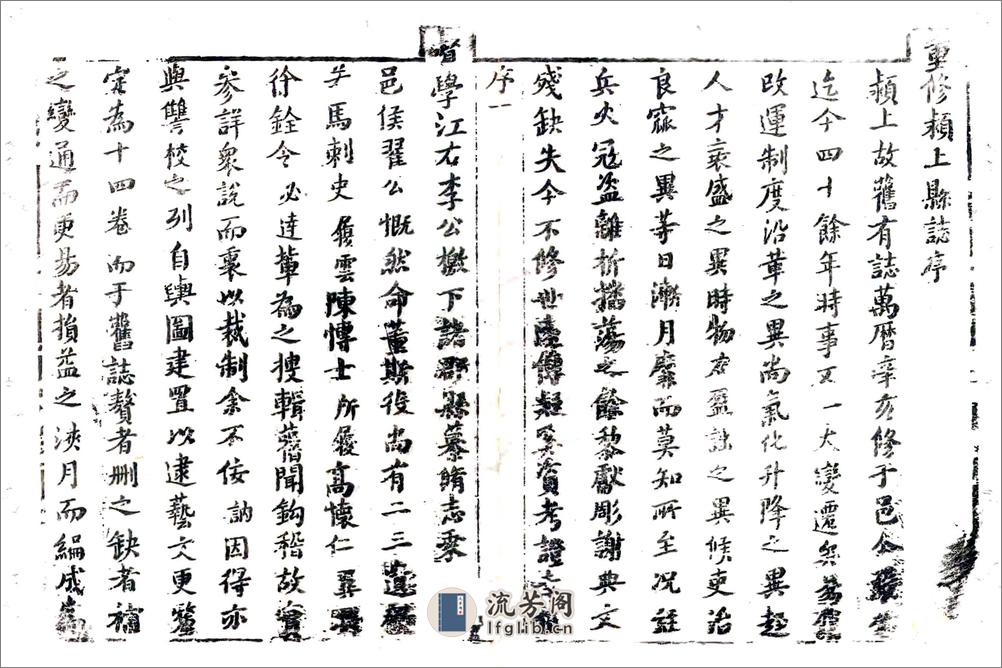 重修潁上縣誌序
潁上故舊有誌萬曆辛亥修于邑令
迄今四十餘年時事又一大變遷矣
改運制度沿革之異尚氣化升降之異起
人才衰盛之異時物盈詘之異候吏治
良窳之異等日漸月靡而莫知所至况註
兵火冠盜離析播蕩之餘黎獻彫謝典文
殘缺失今不修世遠傳疑奚資考證
序一
督學江右李公檄下諸郡縣纂脩志乘
邑侯翟公慨然命董斯役尚有二三
馬刺史履雲陳博士所履高懷仁
徐銓令必達輩為之搜輯舊聞鈎稽故實
參詳衆說而裏以裁制余不佞訥因得亦
與讐校之列自輿圖建置以逮藝文更釐
定為十四卷而于舊誌贅者删之缺者補
之變通而更易者損益之浹月而編成
流芳阁
lfglib.cn